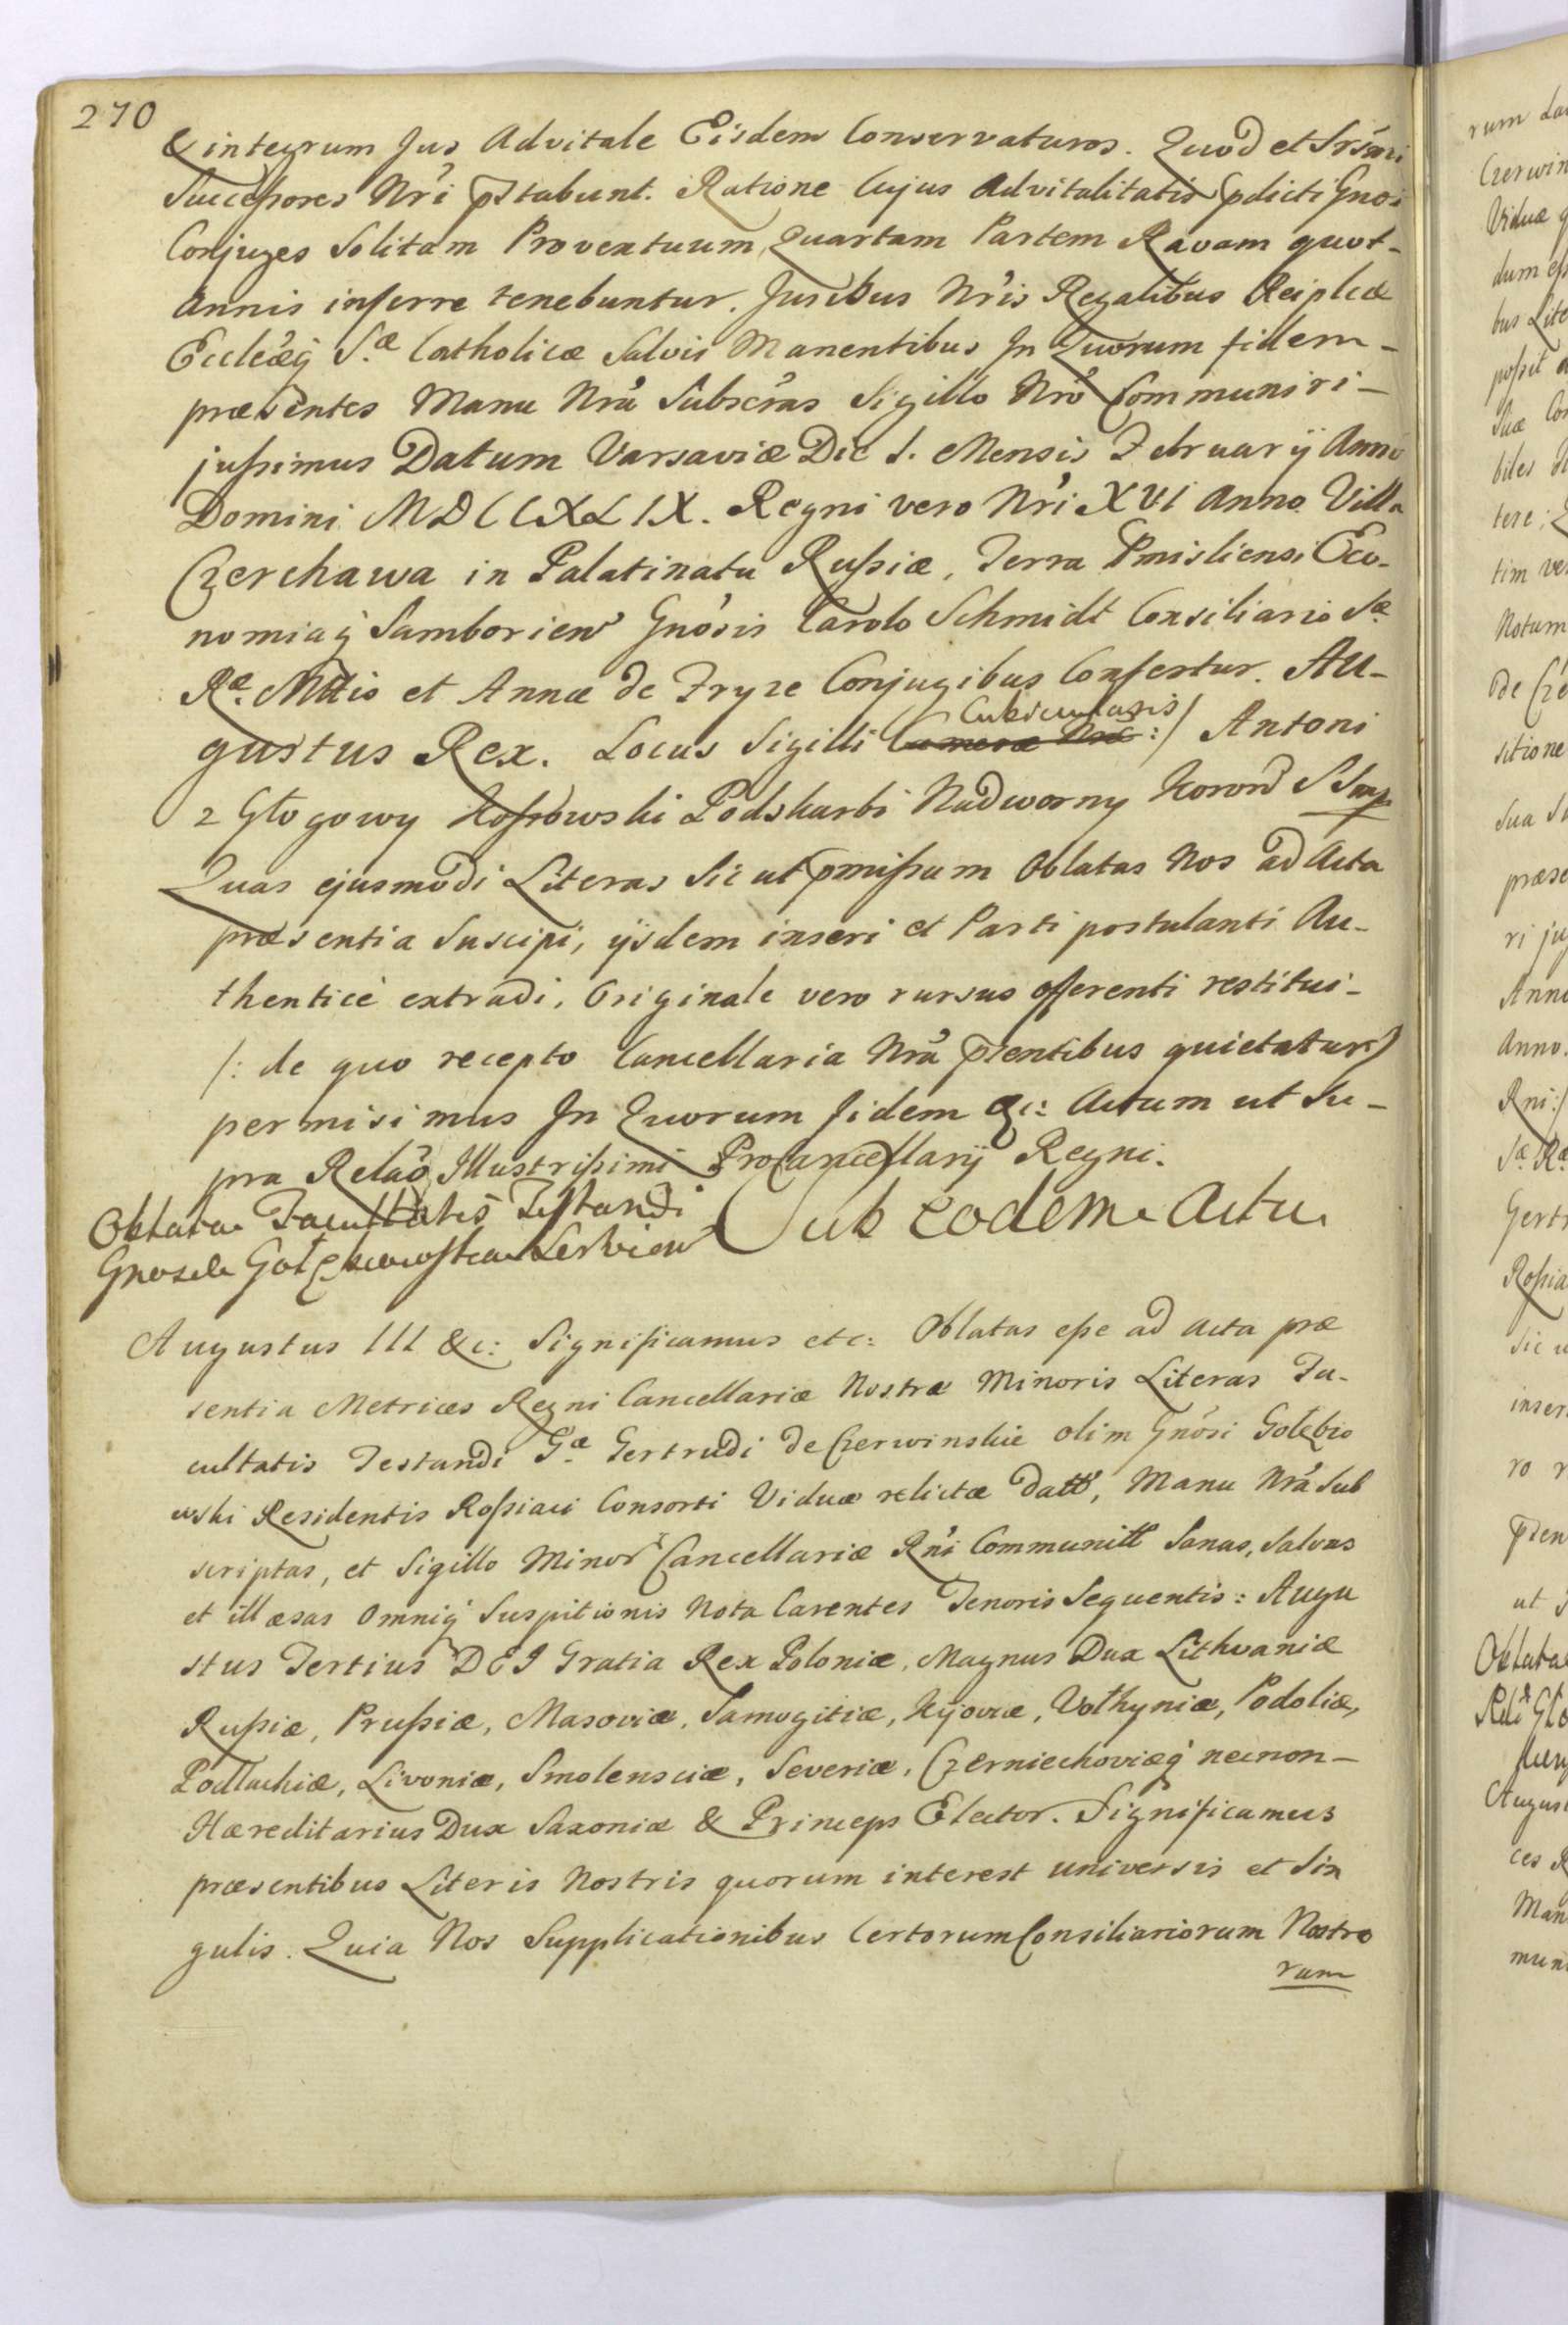 270
& integrum Jus Advitale Eisdem Conservaturos. Quod et Srśmi
Succeßores Nr̃i p̄stabunt. Ratione Cujus Advitalitatis p̄dicti Gnosi
Conjuges Solitam Proventuum Quartam Partem Ravam quot-
annis inferre tenebuntur. Juribus Nr̃is Regalibus Reiplcæ
Eccleæq́ S.æ Catholicæ Salvis Manentibus Jn Quorum fidem-
præsentes Manu Nrã Subscr̃as Sigillo Nrõ Communiri-
jußimus Datum Varsaviæ Die 1. Mensis Februarÿ Anno
Domini MDCCXLIX. Regni vero Nr̃i XVI Anno. Villa
Czerchawa in Palatinatu Rußiæ, Terra Pmisliensi Œco-
nomiaq́ Samborien̄ Gnósis Carolo Schmidt Consiliario S.æ
R.æ Mttis et Annæ de Fryze Conjugibus Confertur. Au-
gustus Rex. Locus Sigilli Cubicularis :/ Antoni
z Głogowy Koßowski Podskarbi Nadworny Koron̄ S Smp
Quas ejusmodi Literas Sic ut p̄mißum Oblatas Nos ad Acta
præsentia Suscipi, ijsdem inseri et Parti postulanti Au-
thenticè extradi, Originale vero rursus offerenti restitui-
/: de quo recepto Cancellaria Nrã p̄sentibus quietatur:/
permisimus Jn Quorum fidem &c: Actum ut Su-
pra Relaõ Illustrißimi ProCancellarij Regni.
Oblata Facultatis Testandi
Sub eodem Actu
Augustus III &c: Significamus etc: Oblatas eße ad Acta præ
sentia Metrices Regni Cancellariæ Nostræ Minoris Literas Fa-
cultatis Testandi G.æ Gertrudi de Czerwinskie olim Gnósi Gołębio
wski Residentis Roßiaci Consorti Viduæ relictæ datt̃, Manu Nrã Sub
scriptas, et Sigillo Minor̃ Cancellariæ Rñi Communitt̃ Sanas, Salvas
et illæsas Omniq́ Suspitionis Nota Carentes Tenoris Sequentis: Augu
stus Tertius DEI Gratia Rex Poloniæ, Magnus Dux Lithvaniæ
Rußiæ, Prußiæ, Masoviæ, Samogitiæ, Kijoviæ, Volhyniæ, Podoliæ,
Podlachiæ, Livoniæ, Smolensciæ, Severiæ, Czerniechoviæq́ necnon-
Hæreditarius Dux Saxoniæ & Princeps Elector. Significamus
præsentibus Literis Nostris quorum interest universis et Sin
gulis. Quia Nos Supplicationibus Certorum Consiliariorum Nostro
rum